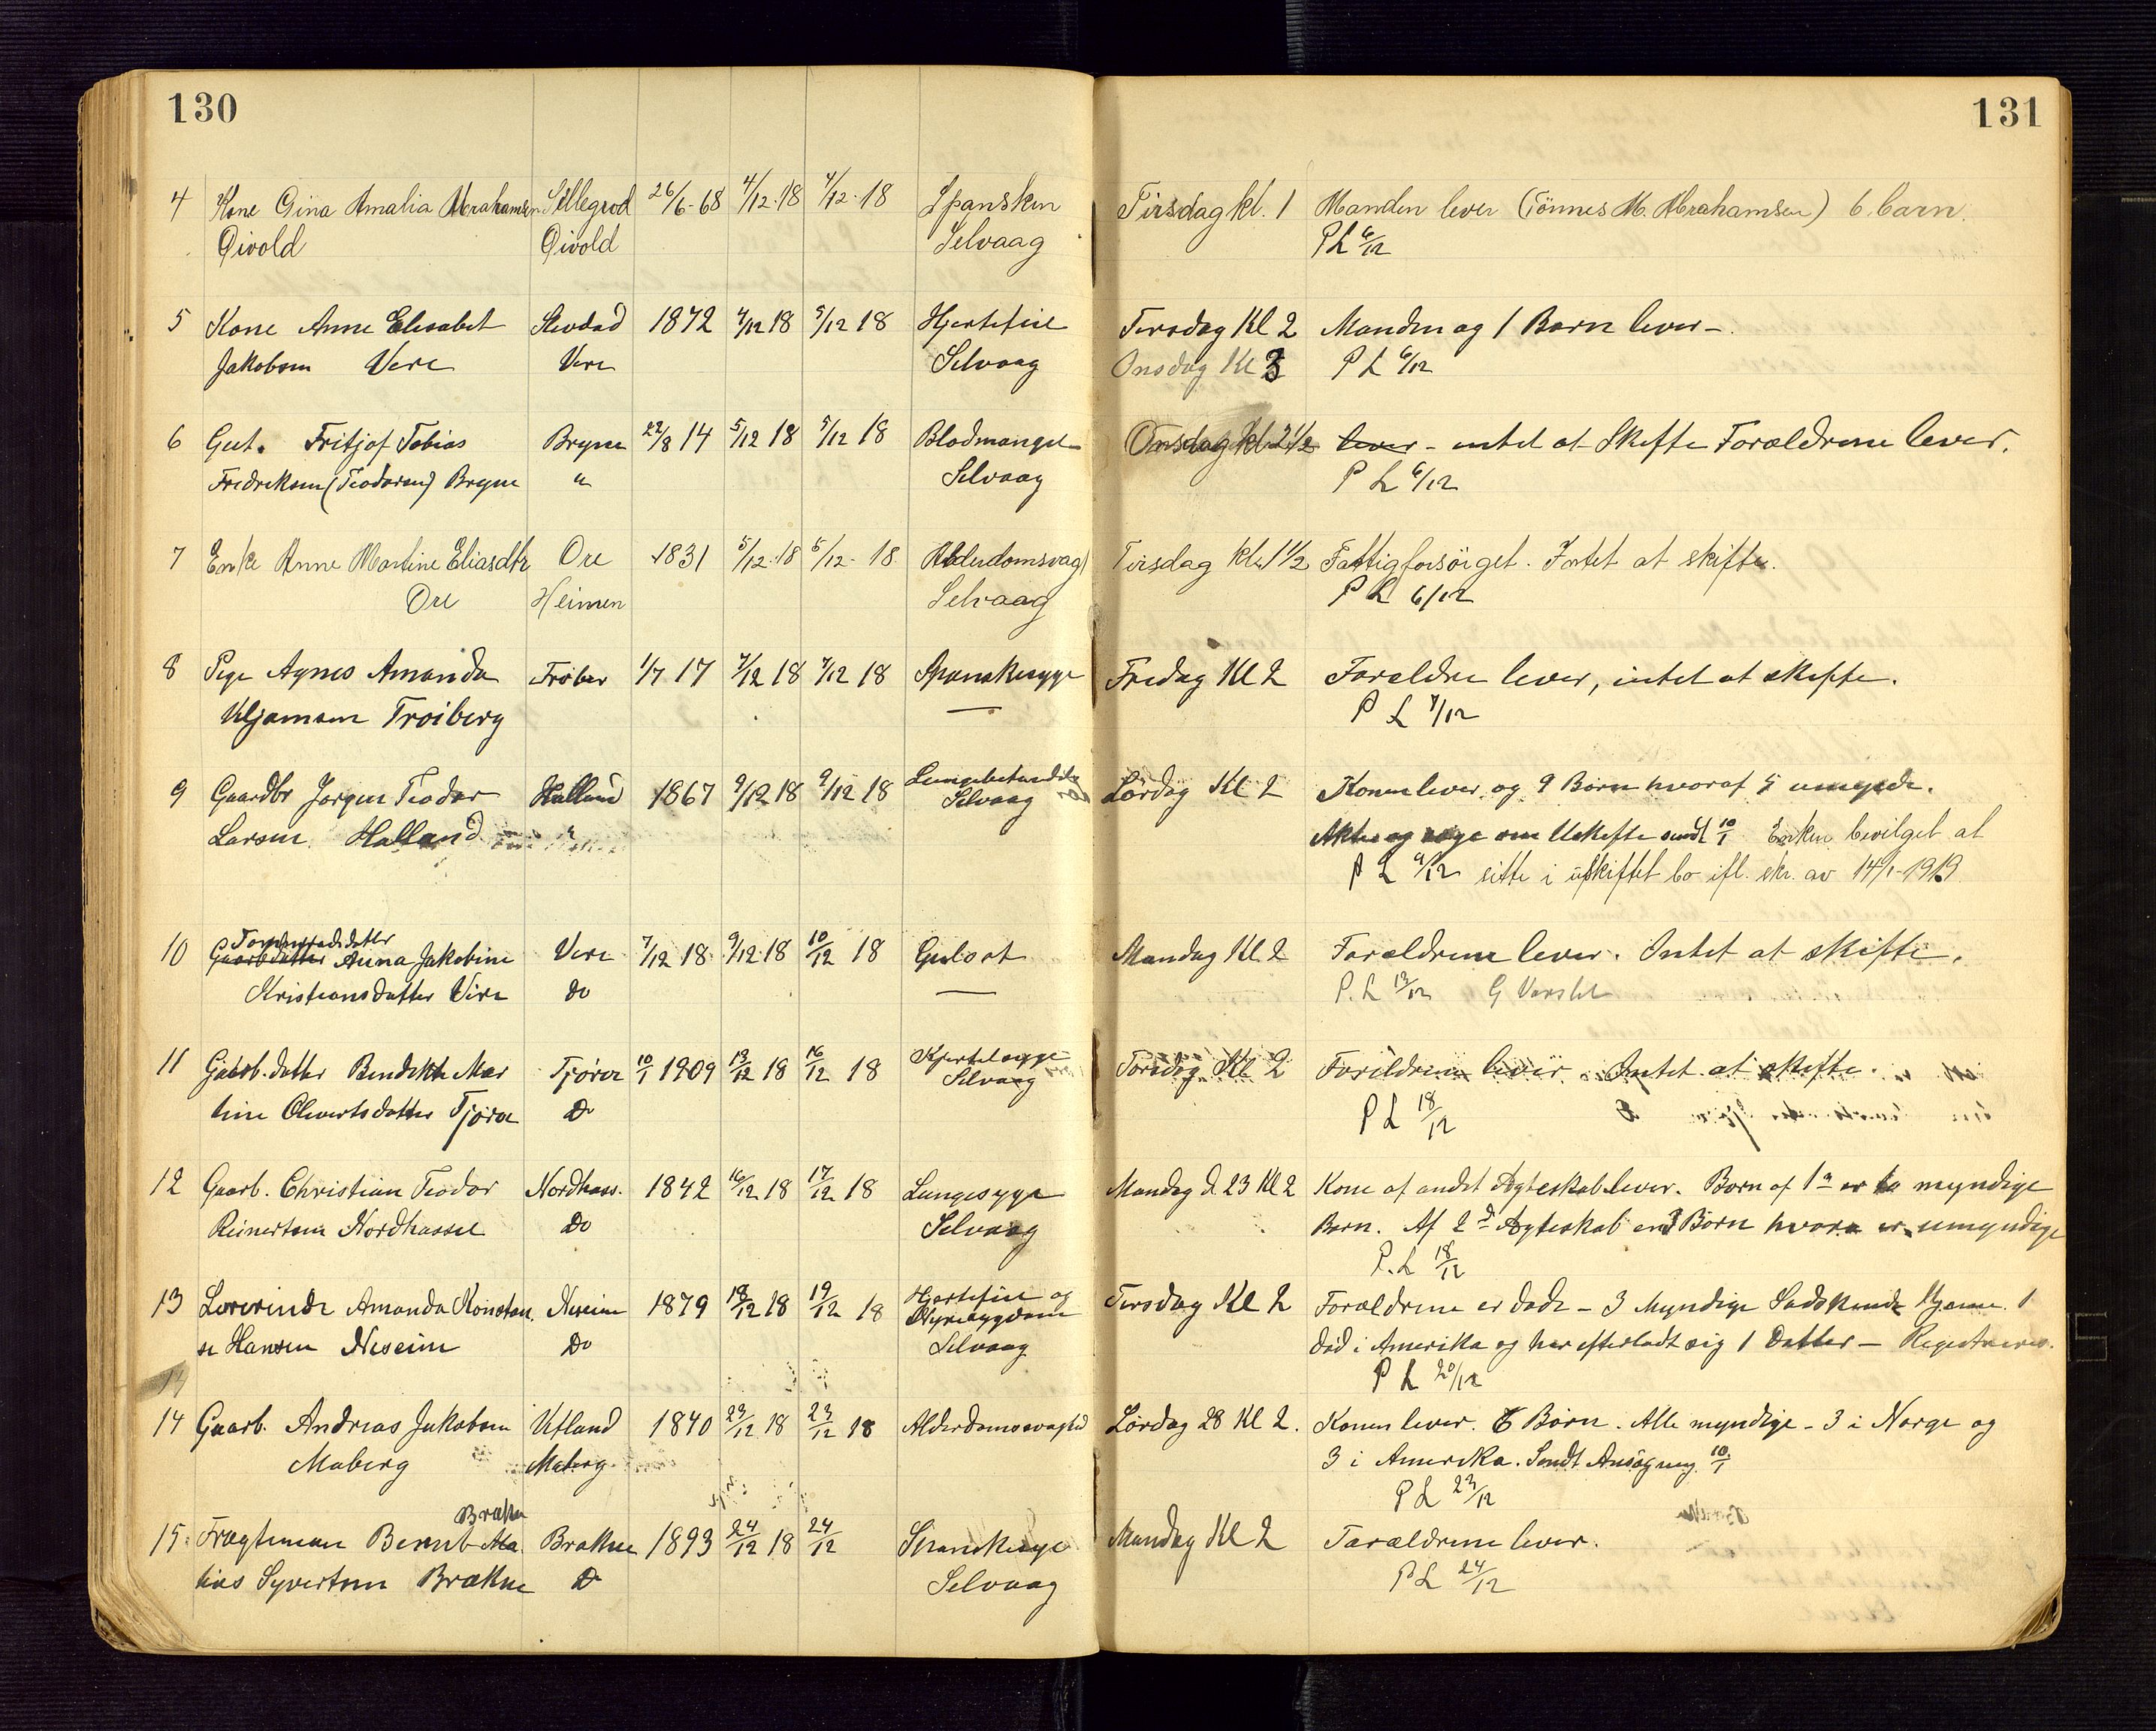 130
131
4 Kone Gina Amalia Abrahamsen Sillegrod 26/6-68 4/12-18 4/12-18 Spansken Tirsdag kl. 1 Manden lever (Tönnes M. Abrahamsen) 6 barn.
Qivold Qivold Selvaag PL 6/12
5 Kone Anne Elisabet 1872 4/12 18 5/12 18 Hjertefeil Tirsdag Kl 2 Manden og 1 Barn lever -
Jakobsen Vere Vere Selvaag Onsdag Kl 3 P L 6/12
6 Gut. Fritjof Tobias Bryne 22/8 14 5/12 18 5/12 18 Blodmangel Onsdag kl 2 1/2 lever - intet at Skifte Forældrene lever.
Fredriksen (Teodorsen) Bryne " Selvaag P L 6/12
7 Enke Anne Martine Eliasdtr Ore 1831 5/12-18 6/12-18 Tirsdag kl. 1 1/2 Fattigforsörget. Intet at skifte.
Ore Heimen Selvaag P L 6/12
8 Pige Agnes Amanda 1/7 17 7/12 18 7/12 18 Spanskesyge Fredag Kl 2 Forældre lever, intet at skifte.
Viljamsen Troiberg — P L 7/12
9 Gaardbr Jørgen Teodor Halland 1867 9/12 18 9/12 18 Lørdag Kl 2 Konen lever og 9 Børn hvoraf 5 umynde.
Larsen Halland " Selvaag om Uskifte sendt 10/1 Enken bevilget at
P L 9/12 sitte i uskiftet bo ifl. skr. av 14/1-1919
10 Gaarbdatter Anna Jakobine Vere 7/12 18 9/12 18 10/12 18 Gulsot Mandag Kl 2 Forældrene lever. Intet at skifte.
Kristiansdatter Vere Do — P. L 13/12
11 Gaarb.datter Bendikte Mar Tjørve 10/1 1909 13/12 18 16/12 18 Kjertelsyge Torsdag Kl 2 Foreldrene lever. Intet at skifte.
tine Olevertsdatter Tjørve Do Selvaag P L 18/12
12 Gaarb. Christian Teodor Nordhass. 1842 16/12 18 17/12 18 Lungesyge Mandag d 23 Kl 2 Kone af andet Ægteskab lever. Born af 1ste er to myndige
Reinertsen Nordhassel Do Selvaag Born. Af 2d Ægteskab er 3 Börn umyndige
P. L 18/12
13 Lærerinde Amanda Konstan. Neseim 1879 18/12 18 19/12 18 Hjertefeil og Tirsdag Kl 2 Forældrene er døde - 3 Myndige Sødskende Hjemme. 1
se Hansen Neseim Do Nyresygdom Död i Amerika og har efterladt sig 1 Datter - Registreres.
Selvaag P L 20/12
14 Gaarb. Andreas Jakobsen Vetland 1840 23/12 18 23/12 18 Alderdomssvaghed Lørdag 28 Kl 2. Konen lever. 6 Börn. Alle myndige - 3 i Norge og
Maberg Maberg 3 i Amerika. Sendt Ansøgning 10/1
P L 23/12
Brækne
15 Fragteman Bernt Ma Brækne 1893 24/12 18 24/12 Spanskesyge Mandag Kl 2 Forældrene lever.
tias Syvertsen Brækne Do Selvaag P L 24/12